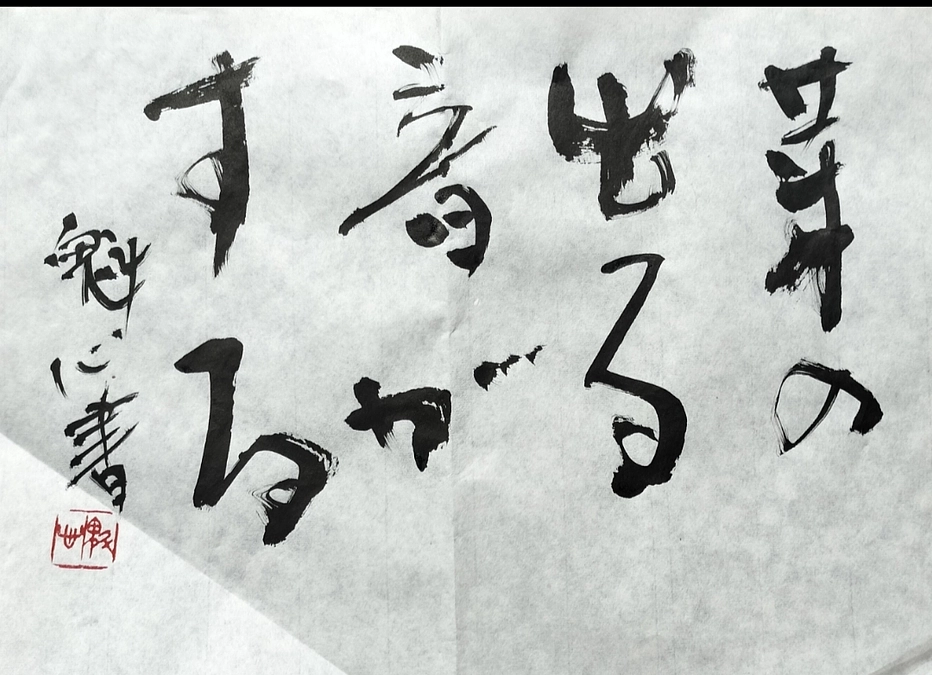 芽の
出る
音が
する
魁心書